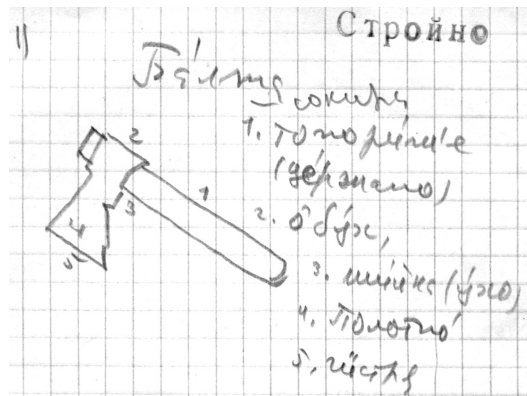 1) Стройно
Ба́лта
сокира
1. топори́ще
(де́ржално)
2. о́бух,
3. ши́йка (у́хо)
4. полотно́
5. гістря
2
1
3
4
5